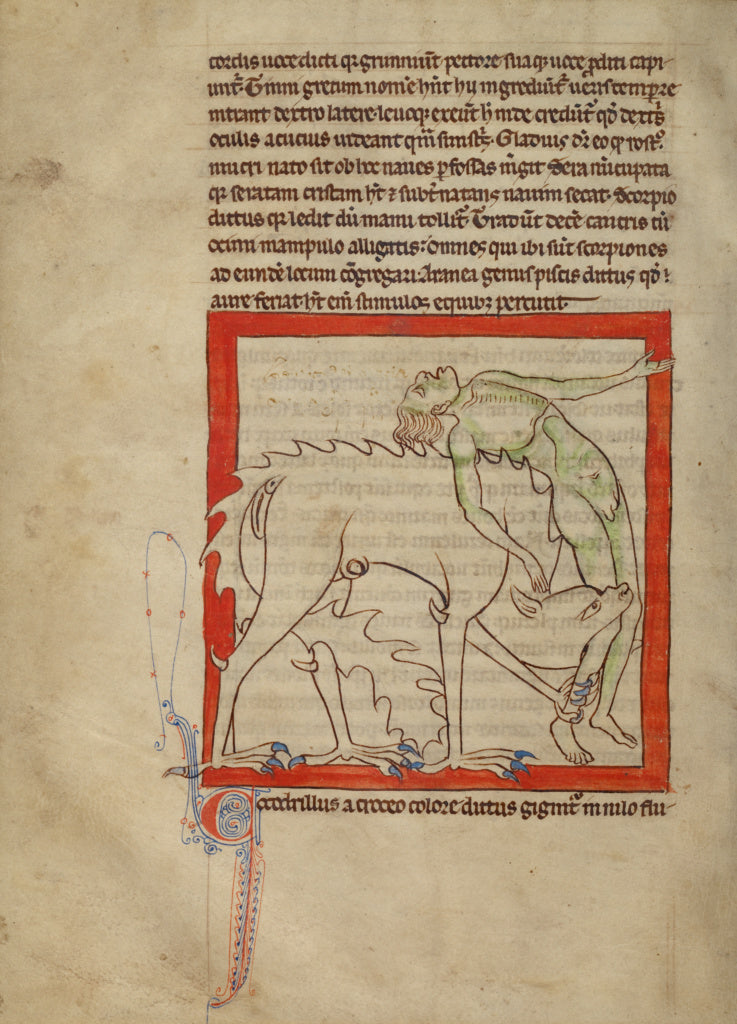 cordis uoce dicti qr grunniūt pectore sua qꝫ uoce ꝓditi capi-
unt̄. Timni grecum nom̄e hn̄t hij ingrediūt̄ ueris tempore
intrant dextro latere. leuoqꝫ exeūt h̄ inde credūt̄ qđ dextˀs
oculis acucius uideant qm̄ sinistˀs. Gladius dr̄ eo qꝫ rostˀ
mucrī nato sit ob hoc naues ꝑfossas m̄git. Serra nūcupata
qr seratam cristam hт̄ ⁊ subt̄natans nauim secat. Scorpio
dictus qr ledit dū manu tollit̄. Tradūt decē cancris cū
ocimi manipulo alligatis: omnes qui ibi sūt scorpiones
ad eundē locum cōgregari. Aranea genus piscis dictus qđ:
aure feriat. hт̄ em̄ stimulos equibꝫ percutit.
Cocodrillus a croceo colore dictus gignit̄ in nilo flu-